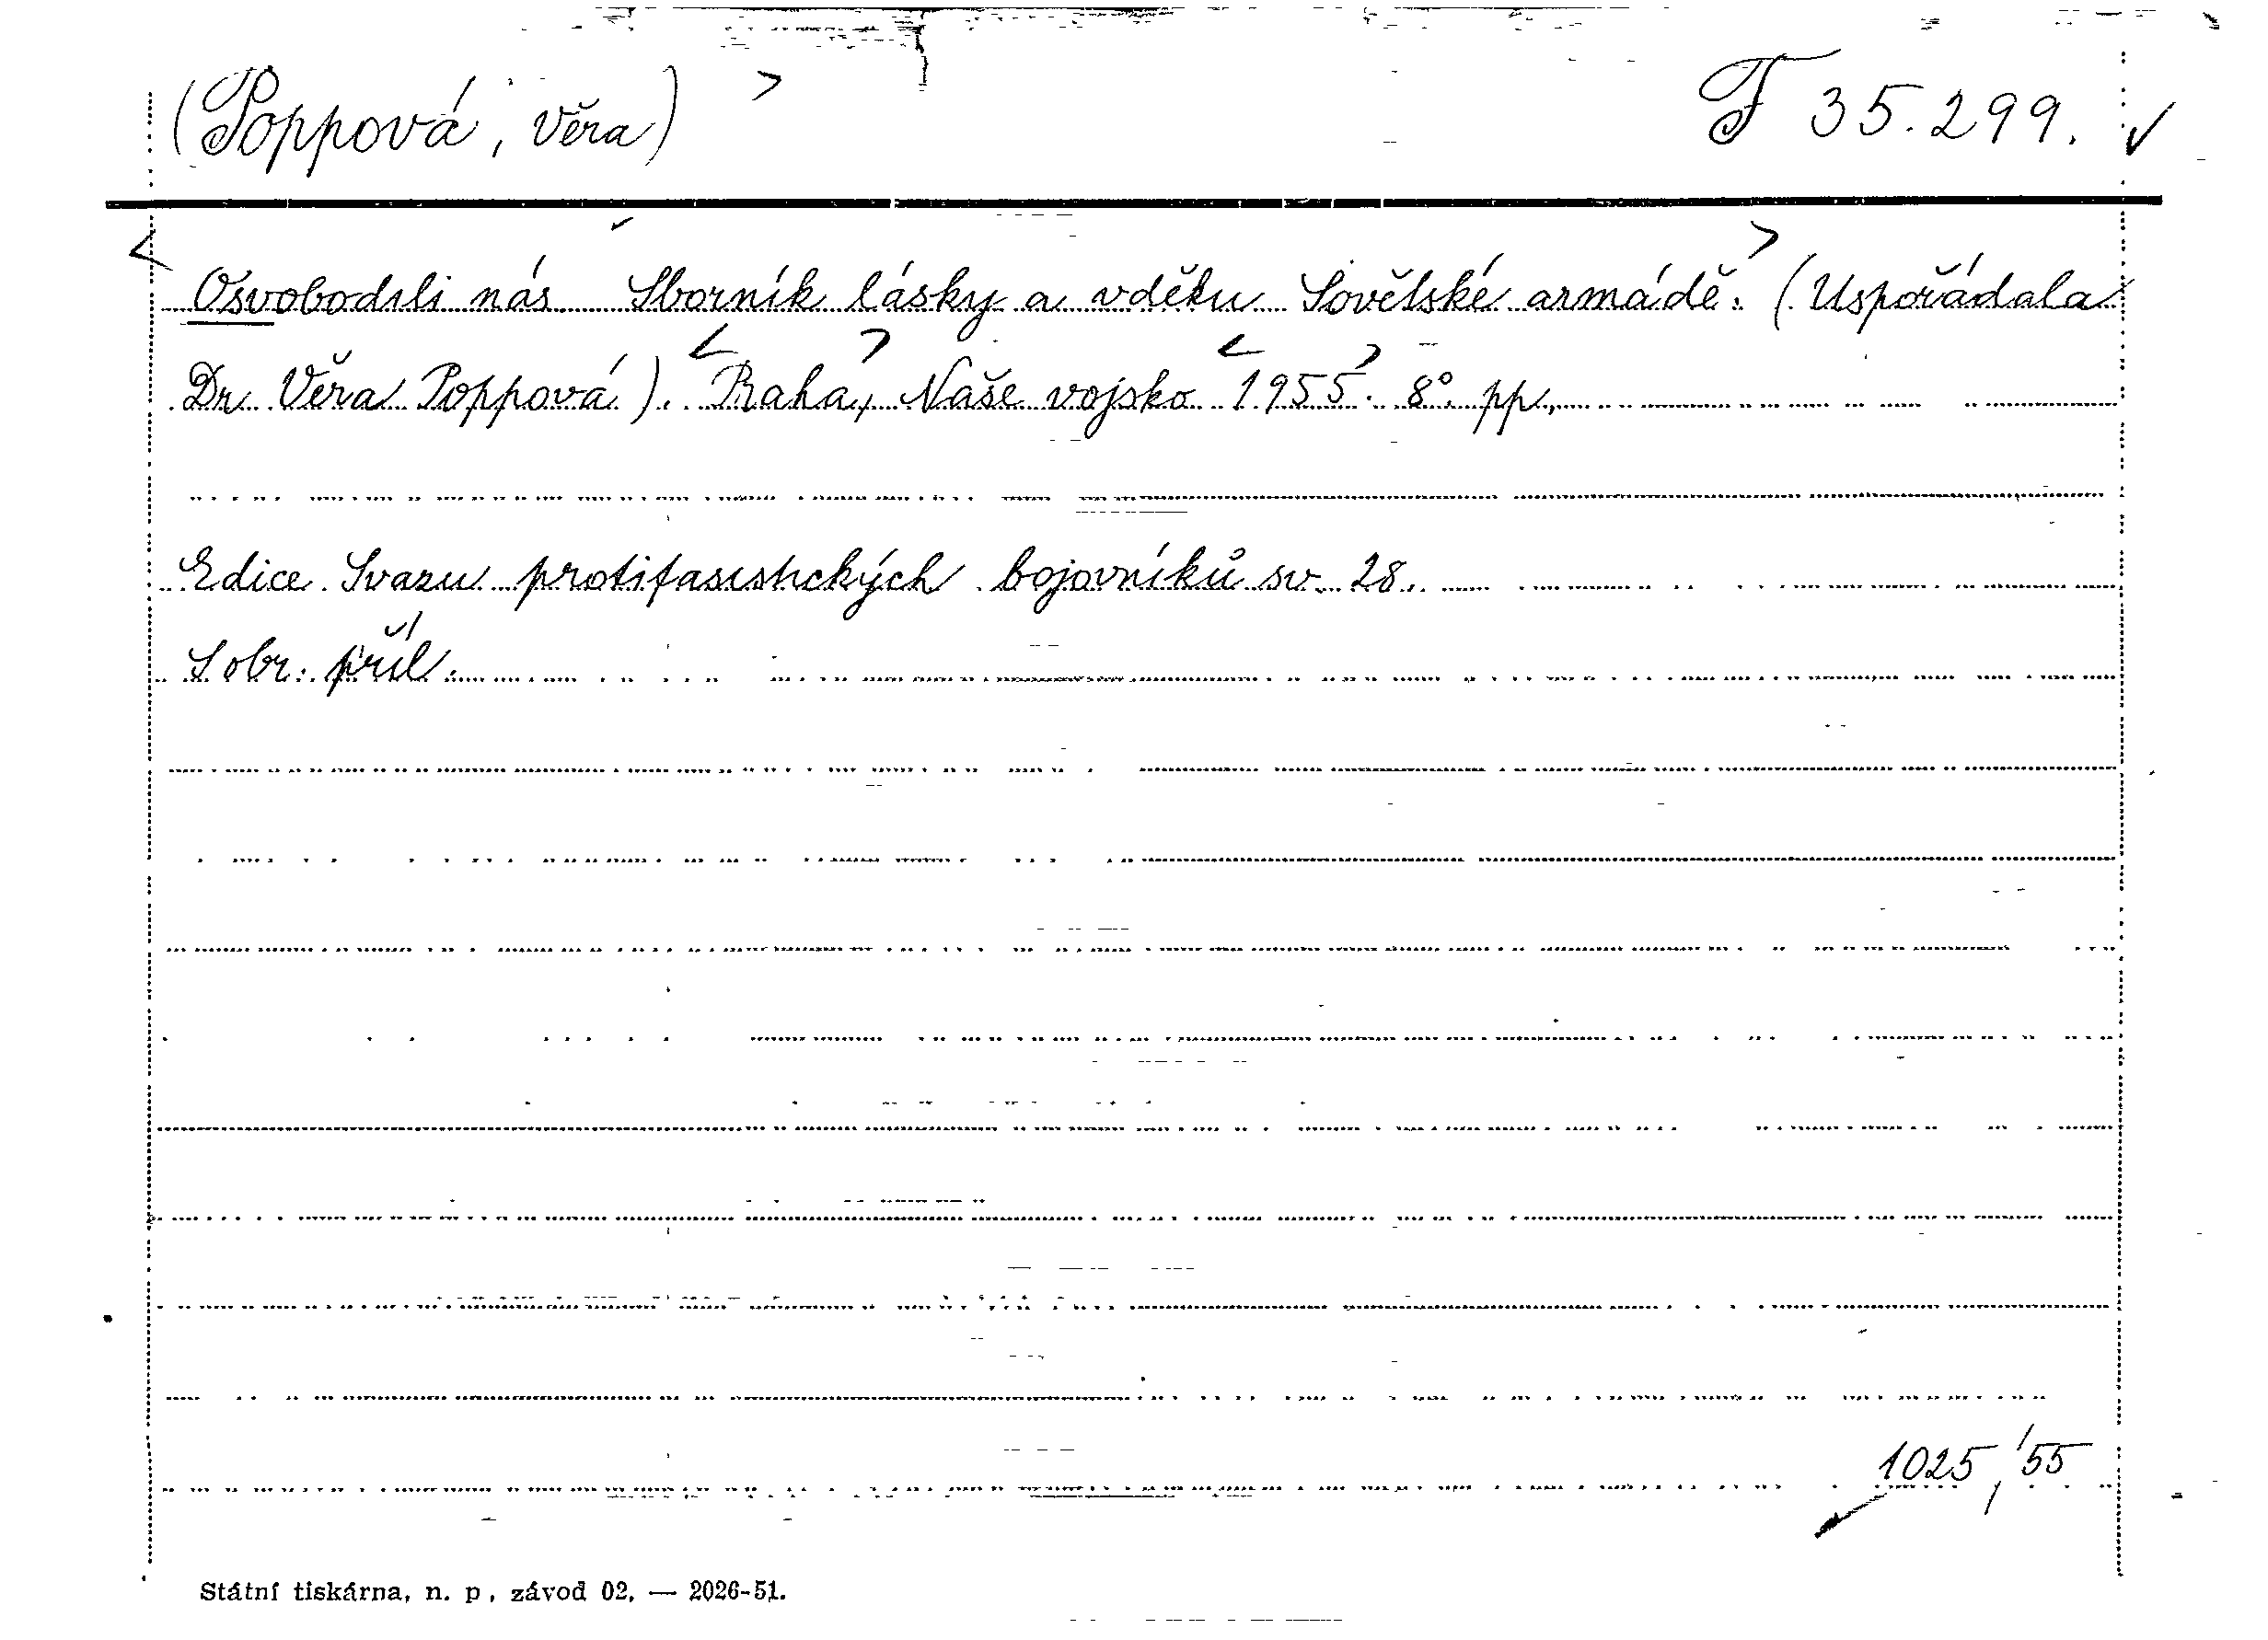 (Poppová, Věra) F 35.299.
Osvobodili nás Sborník lásky a vděku Sovětské armádě. (Uspořádala
Dr Věra Poppová). Praha, Naše vojsko 1955. 8°. pp.
Edice Svazu protifasistických bojovníků sv. 28.
S obr. příl.
1025/55
Státní tiskárna, n. p., závod 02. — 2026-51.